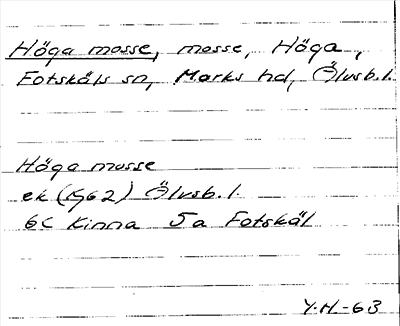 Höga mosse, mosse, Höga,
Fotskäls sn, Marks hd, Älvsb. l.
Höga mosse
ek (Kg62) Älvsb. l.
6C Kinna 5a Fotskäl
Y.H.-63